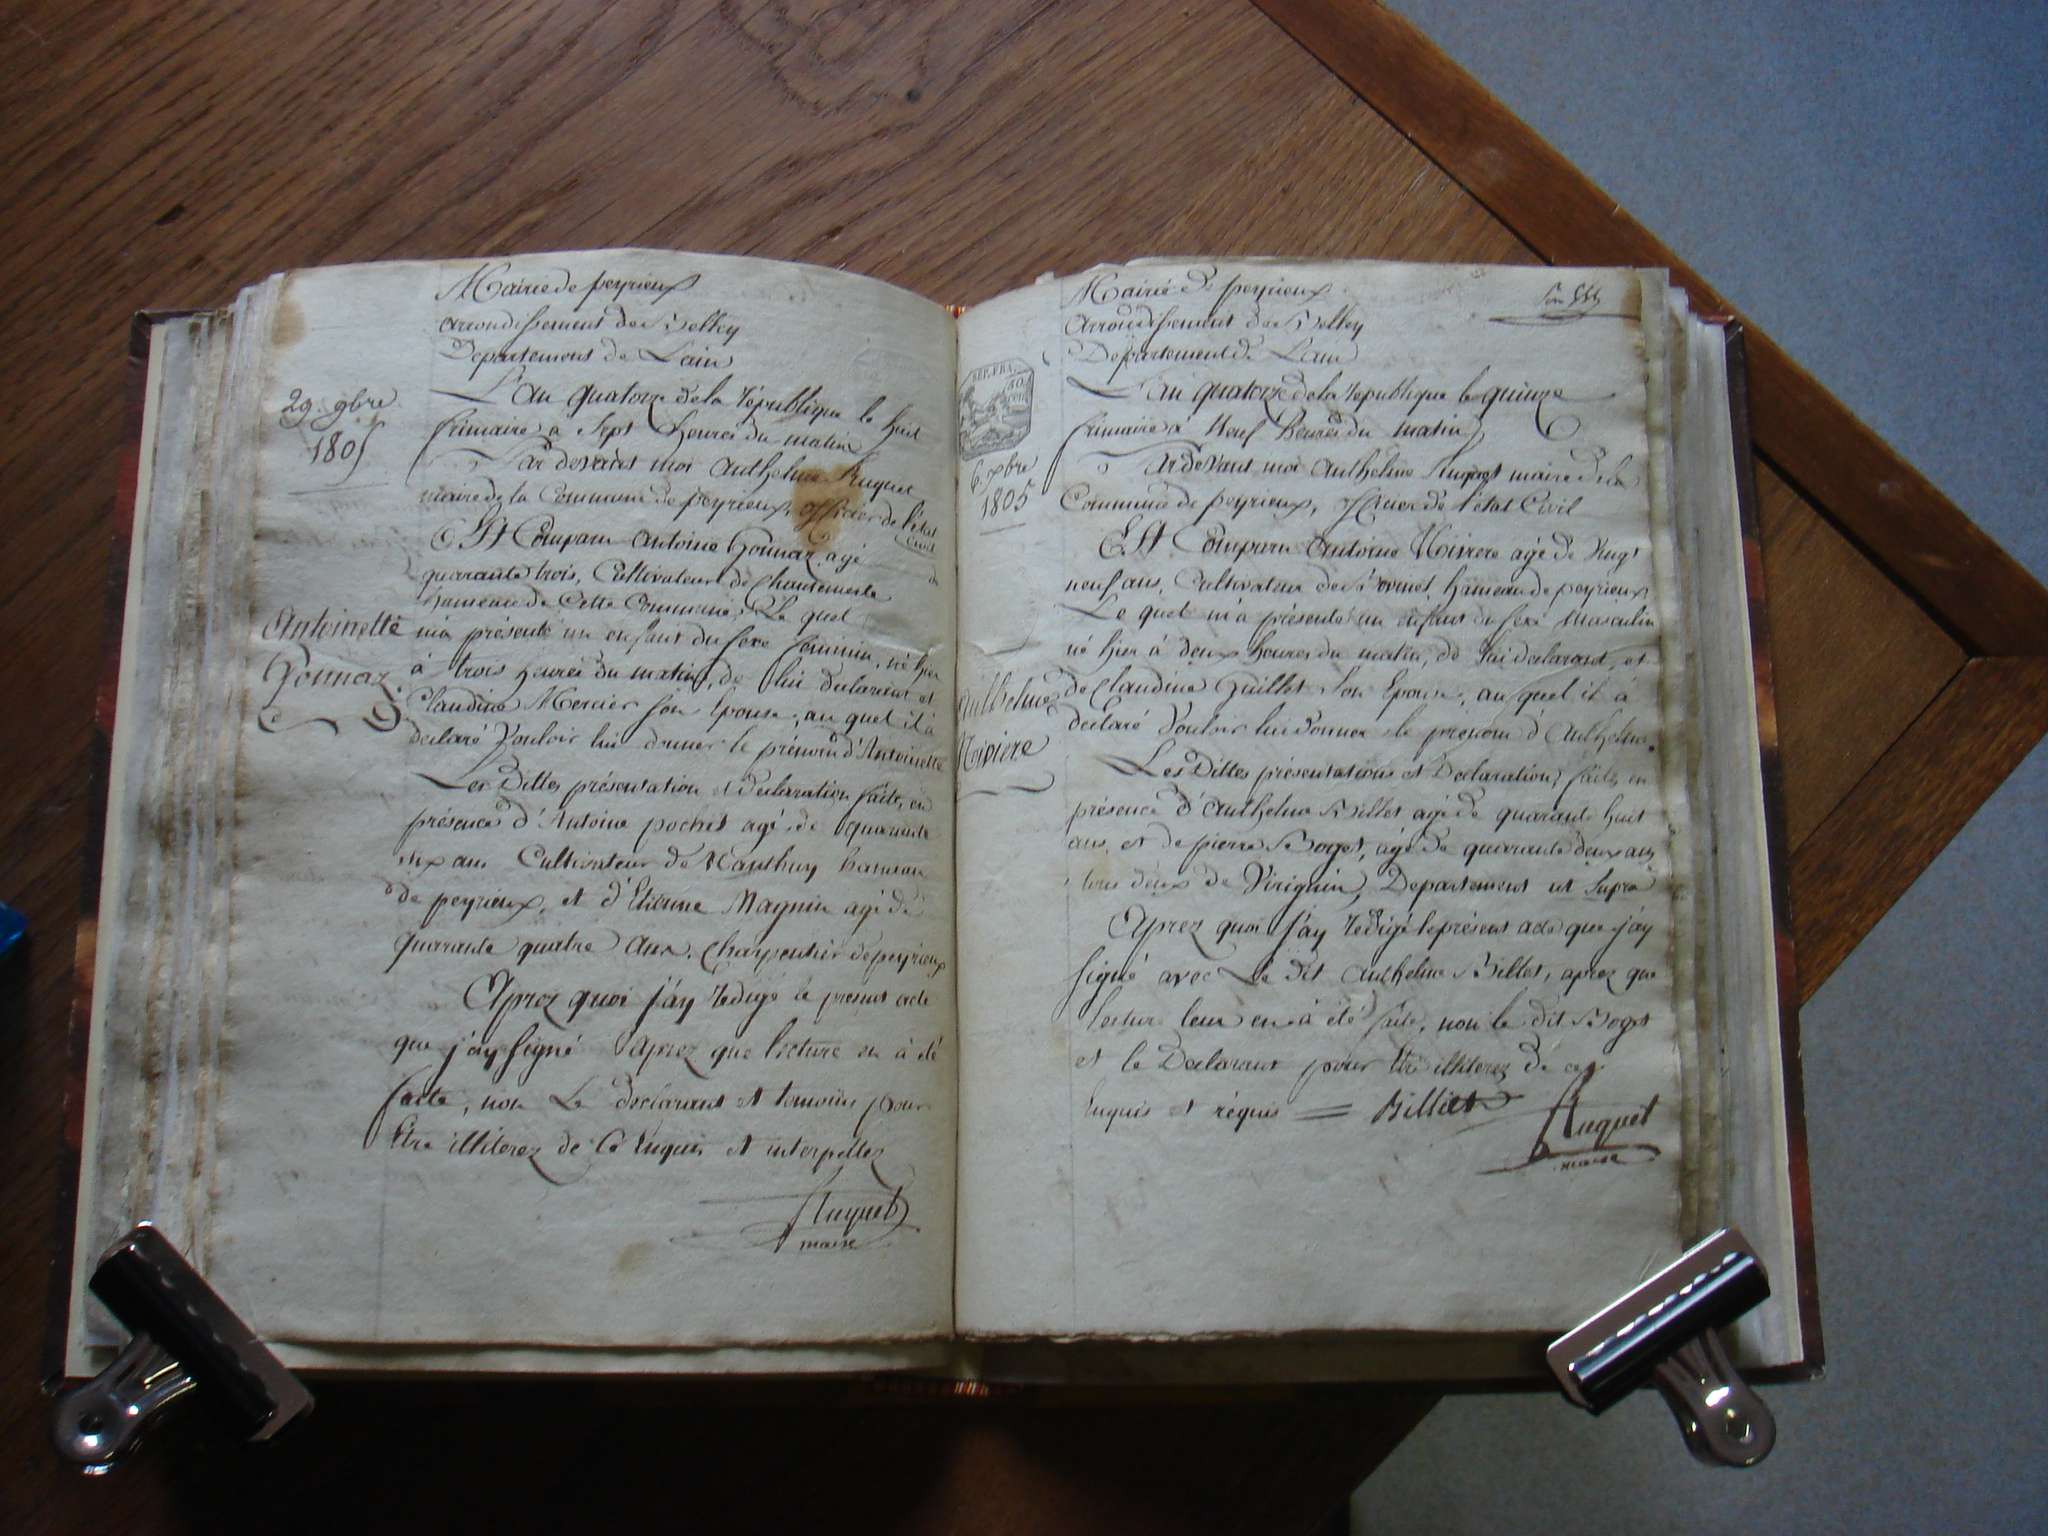 Mairie de peyrieux
arrondissement de Belley
Departement de Lain
29. 9bre
1805
L'an quatorze de la république le huit
frimaire a sept heures du matin
Par devant moi Anthelme Huguet
maire de la Commune de peyrieux, officier de l'état
civil
Est Comparu Antoine Gonnaz agé de
quarante trois, Cultivateur de Chantemerle
hameau de Cette Commune, Le quel
Antoinette
Gonnaz
m'a présenté un enfant du sexe feminin, né hier
à trois heures du matin, de lui declarant et
Claudine Mercier son Epouse, au quel il à
declaré Vouloir lui donner le prénom d'Antoinette
Les Dittes présentation et Declaration faites en
présence d'Antoine pochet agé de quarante
six ans Cultivateur de Nanthuy hameau
de peyrieux, et d'Etienne Magnin agé de
quarante quatre ans, Charpentier de peyrieux
Aprez quoi j'ay redigé le present acte
que j'ay signé Aprez que lecture en à été
faite, non Le declarant et temoins pour
Etre illiterez de Ce Enquis et interpellez
Huguet
maire
Mairie de peyrieux
Arrondissement de Belley
Departement de Lain
REP. FRA.
50
CEN
6. xbre
1805
L'an quatorze de la république le quinze
frimaire à Neuf heures du matin
Par devant moi Anthelme Huguet maire de la
Commune de peyrieux, officier de l'état Civil
Est Comparu Antoine Riviere agé de Vingt
neuf ans, Cultivateur de hameau de peyrieux
Le quel m'a présenté un enfant du sexe Masculin
né hier à deux heures du matin, de lui declarant, et
Anthelme
Riviere
de Claudine Guillet son Epouse, au quel il à
declaré Vouloir lui donner le prénom d'Anthelme
Les Dittes présentations et Declaration, faites en
présence d'Anthelme Billet agé de quarante huit
ans, et de pierre Boget, agé de quarante deux ans
tous deux de Virignin, Departement ut supra
Aprez quoi j'ay redigé le présent acte que j'ay
signé avec Le dit Anthelme Billet, aprez que
lecture leur en à été faite, non le dit Boget
et le Declarant pour Etre illiterez de ce
Enquis et réquis = Billiet
Huguet
maire